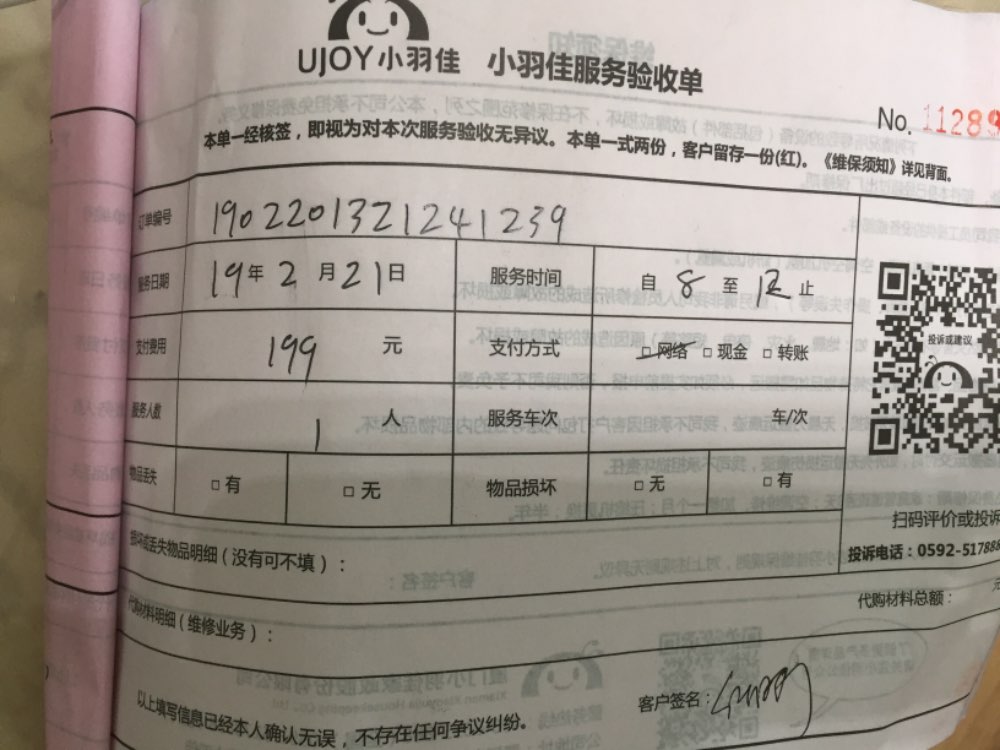 UJOY小羽佳 小羽佳服务验收单
No. 11289
本单一经核签，即视为对本次服务验收无异议。本单一式两份，客户留存一份(红)。《维保须知》详见背面。
订单编号 1902201321241239
服务日期 19年2月21日 服务时间 自8至12止
支付费用 199 元 支付方式 □网络 □现金 □转账
服务人数 1 人 服务车次 车/次
物品丢失 □有 □无 物品损坏 □无 □有
投诉或建议
扫码评价或投诉
投诉电话：0592-517888
损坏或丢失物品明细（没有可不填）：
代购材料明细（维修业务）：
代购材料总额：
以上填写信息已经本人确认无误，不存在任何争议纠纷。
客户签名：